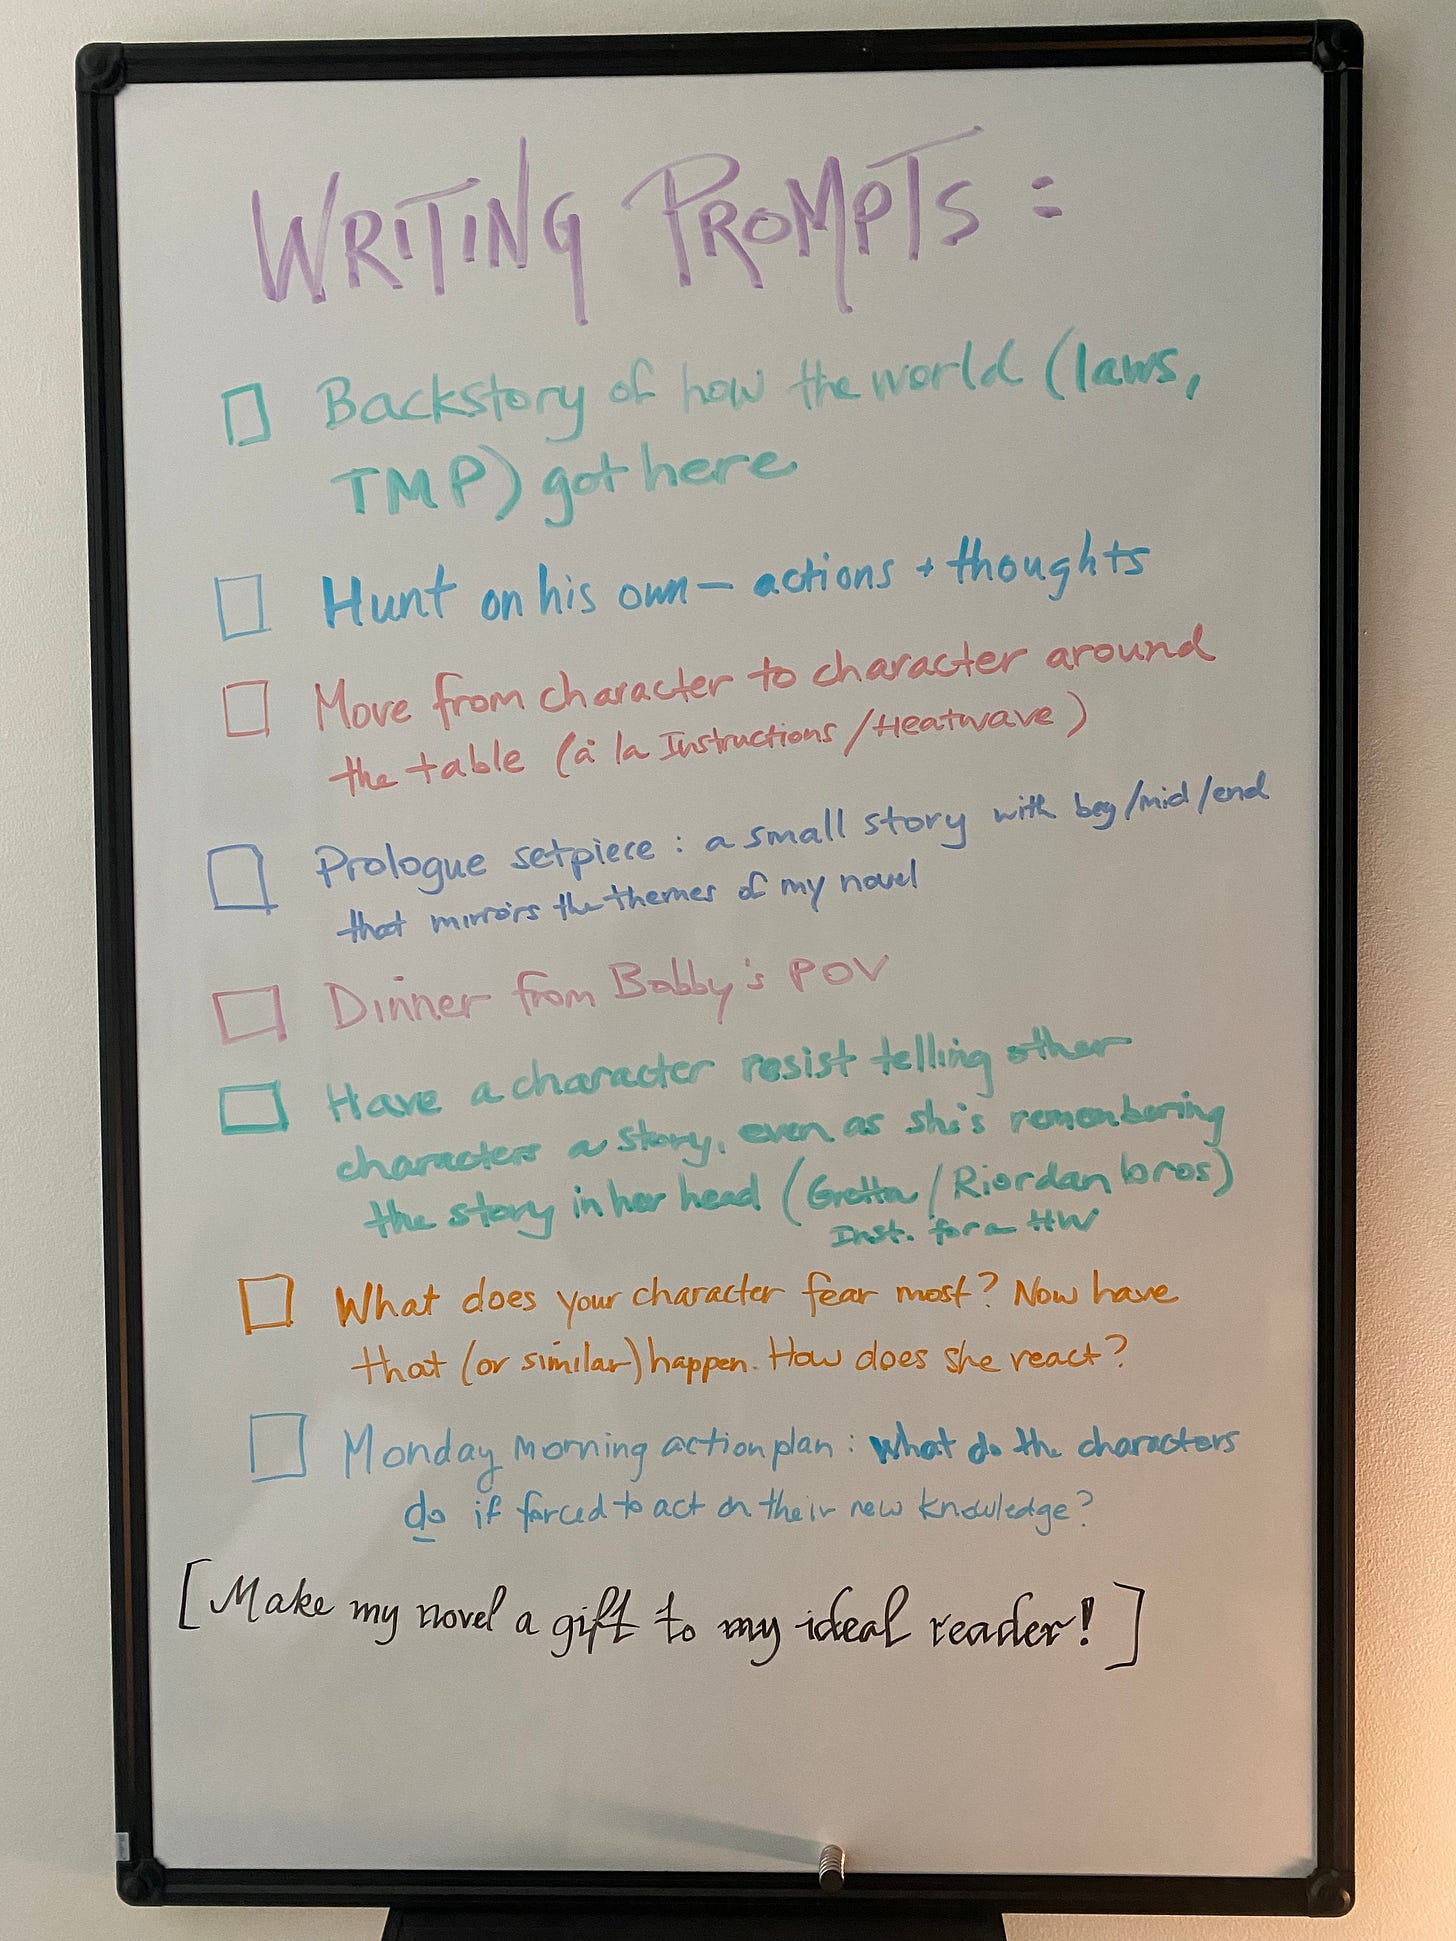 WRITING PROMPTS:
Backstory of how the world (laws,
TMP) got here
Hunt on his own — actions + thoughts
Move from character to character around
the table (à la Instructions/Heatwave)
Prologue setpiece: a small story with beg/mid/end
that mirrors the themes of my novel
Dinner from Bobby's POV
Have a character resist telling other
characters a story, even as she's remembering
the story in her head (Gretta/Riordan bros)
Inst. for a HW
What does your character fear most? Now have
that (or similar) happen. How does she react?
Monday morning action plan: What do the characters
do if forced to act on their new knowledge?
[Make my novel a gift to my ideal reader!]